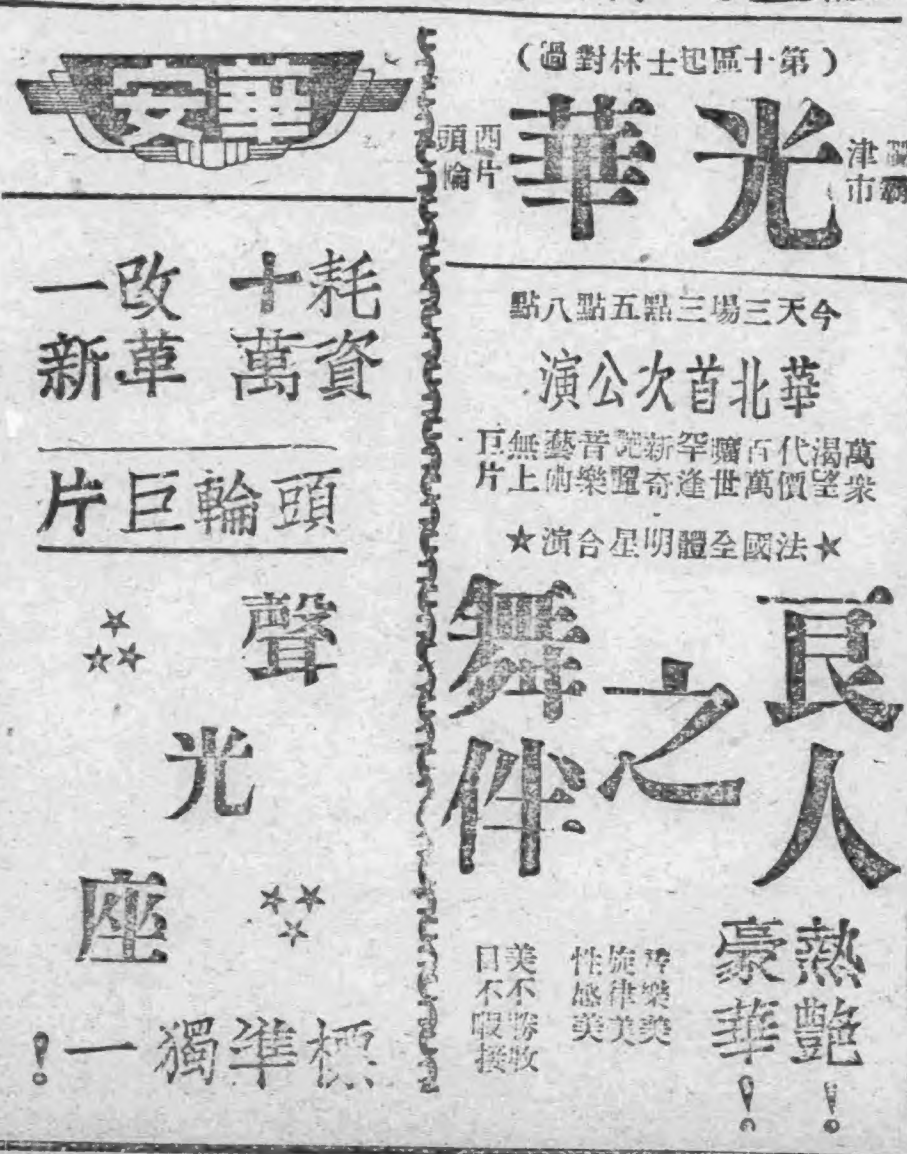 （第十區起士林對過）
津市
光華
西片
頭輪
今天三場三點五點八點
華北首次公演
萬衆
渴望
代價
百萬
曠世
罕逢
新奇
音樂
藝術
無上
巨片
★法國全體明星合演★
良人
之
舞伴
熱艷！
豪華！
音樂美
旋律美
性感美
美不勝收
目不暇接
華安
耗資
十萬
改革
一新
頭輪巨片
聲
光
座
標準獨一！